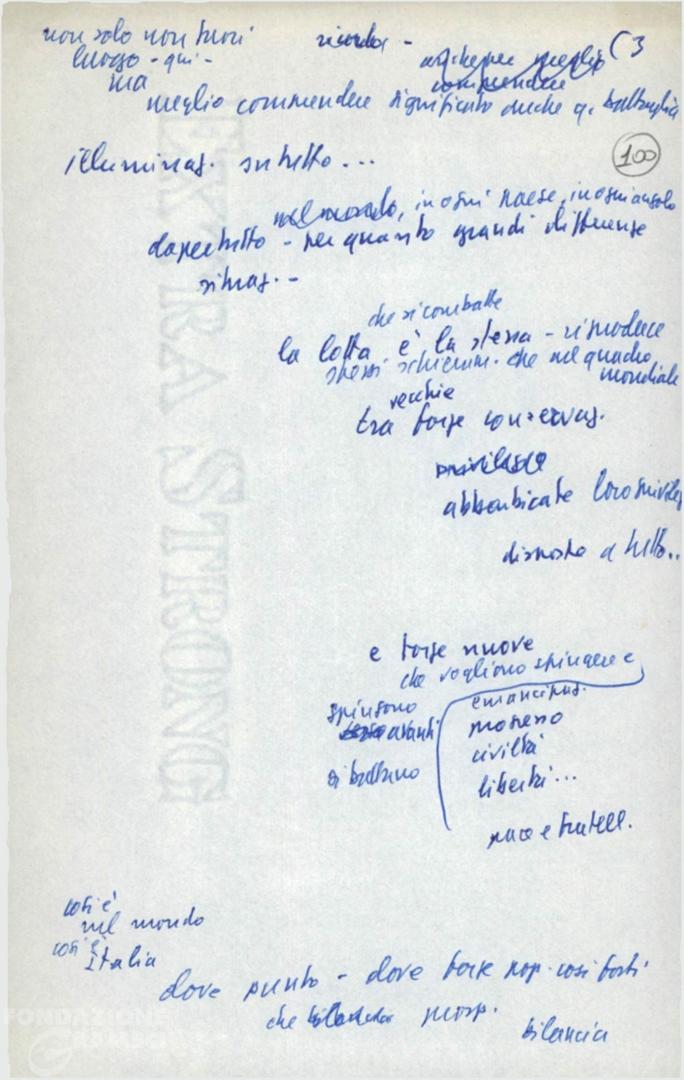 non solo non fuori ricordar - (3
luogo - qui - anche per meglio
ma comprendere
meglio comprendere significato anche q. battaglia
100
illuminaz. subito...
nel mondo, in ogni paese, in ogni angolo
dapertutto - per quanto grandi differenze
situaz. -
che si combatte
la lotta è la stessa - riproduce
stessi schieram. che nel quadro
mondiale
vecchie
tra forze conservaz.
privilegio
abbarbicate loro privileg
disposte a tutto..
e forze nuove
che vogliono spingere e
spingono emancipaz.
avanti progresso
civiltà
si battono
libertà...
pace e fratell.
così è
nel mondo
così è
Italia
dove punto - dove forze pop. così forti
che prosp.
bilancia
EXTRA STRONG
FONDAZIONE